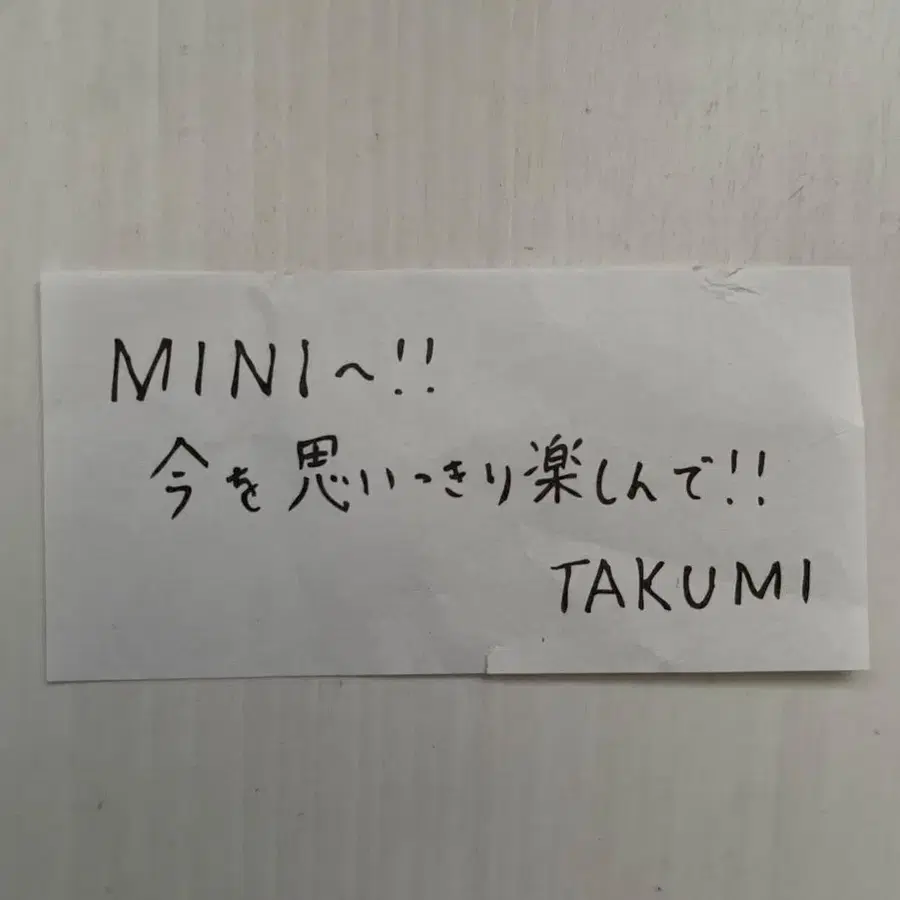 MINIへ!!
今を思いっきり楽しんで!!
TAKUMI